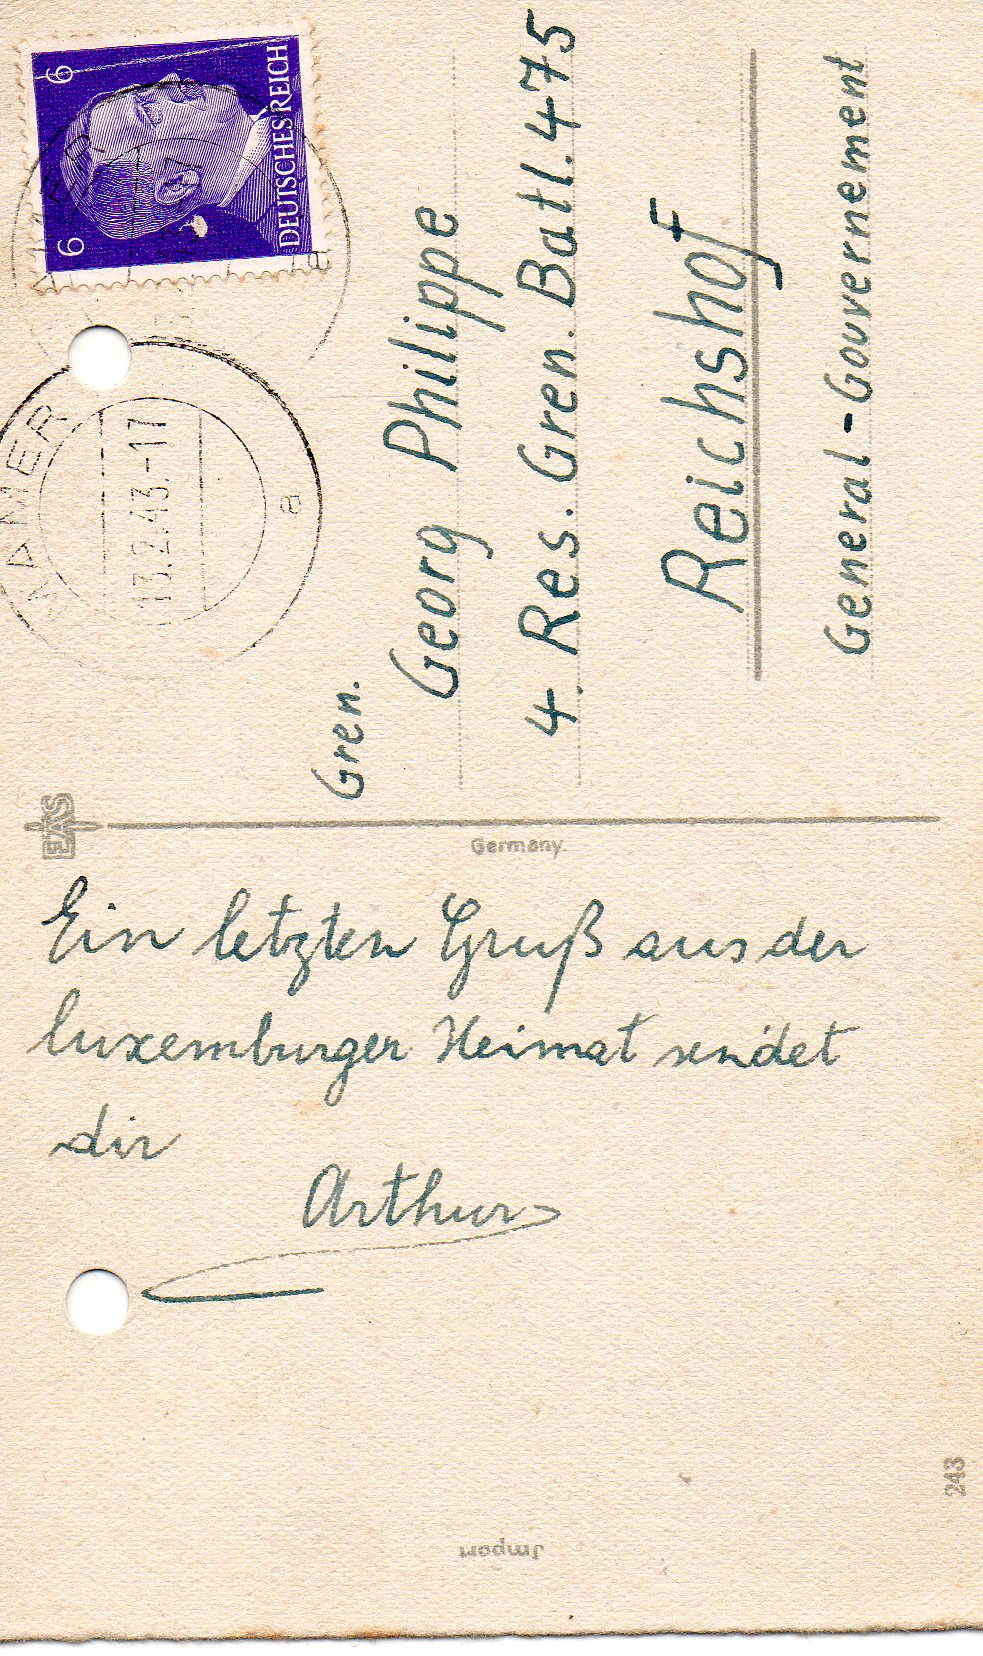 Ein letzten Gruß aus der
luxemburger Heimat sendet
dir
Arthur
Gren.
Georg Philippe
4. Res. Gren. Batl. 475
Reichshof
General-Gouvernement
DEUTSCHES REICH
6 6
MAMER
13.2.43.-17
a
a
EAS
Germany
Jmport
243